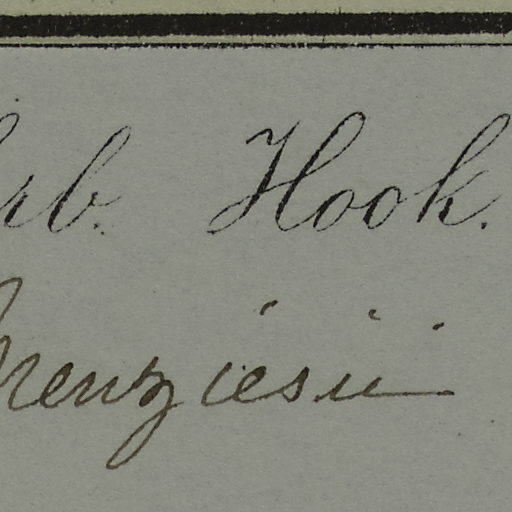 rb. Hook.
Menziesii